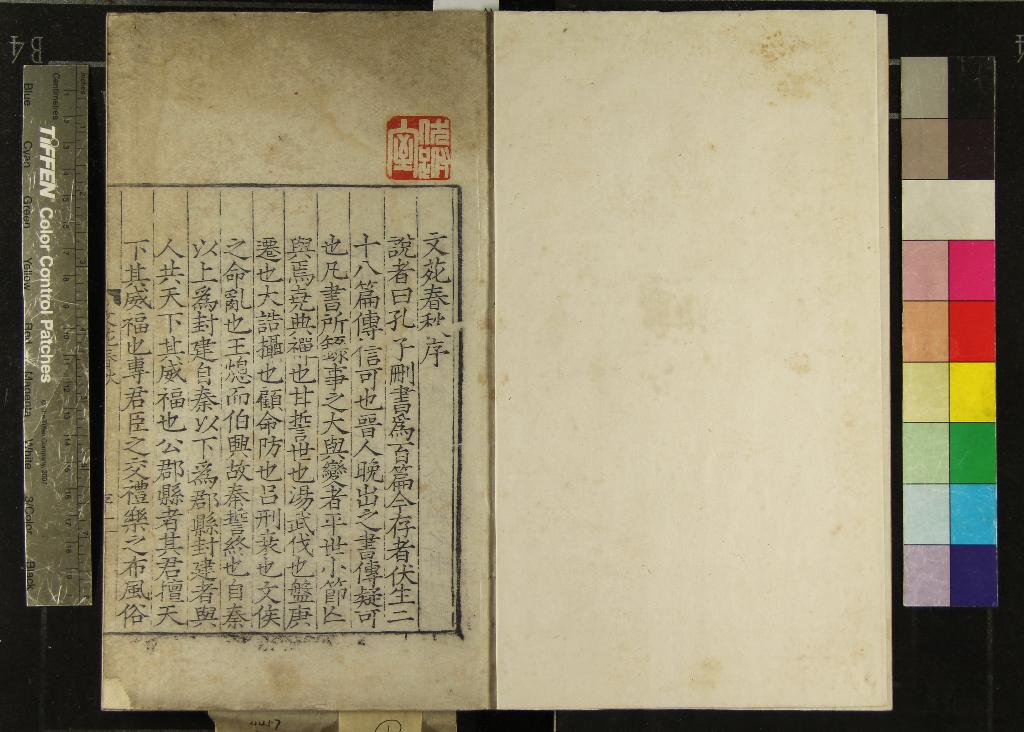 文苑春秋序
說者曰孔子刪書爲百篇今存者伏生二
十八篇傳信可也晉人晚出之書傳疑可
也凡書所錄事之大與變者平世小節亾
與焉堯典禪也甘誓世也湯武伐也盤庚
遷也大誥攝也顧命防也吕刑衰也文侯
之命亂也王熄而伯興故秦誓終也自秦
以上爲封建自秦以下爲郡縣封建者與
人共天下其威福也公郡縣者其君擅天
下其威福也專君臣之交禮樂之布風俗
TIFFEN Color Control Patches
Centimetres
Blue Cyan Green Yellow Red Magenta White 3/Color Black
B4